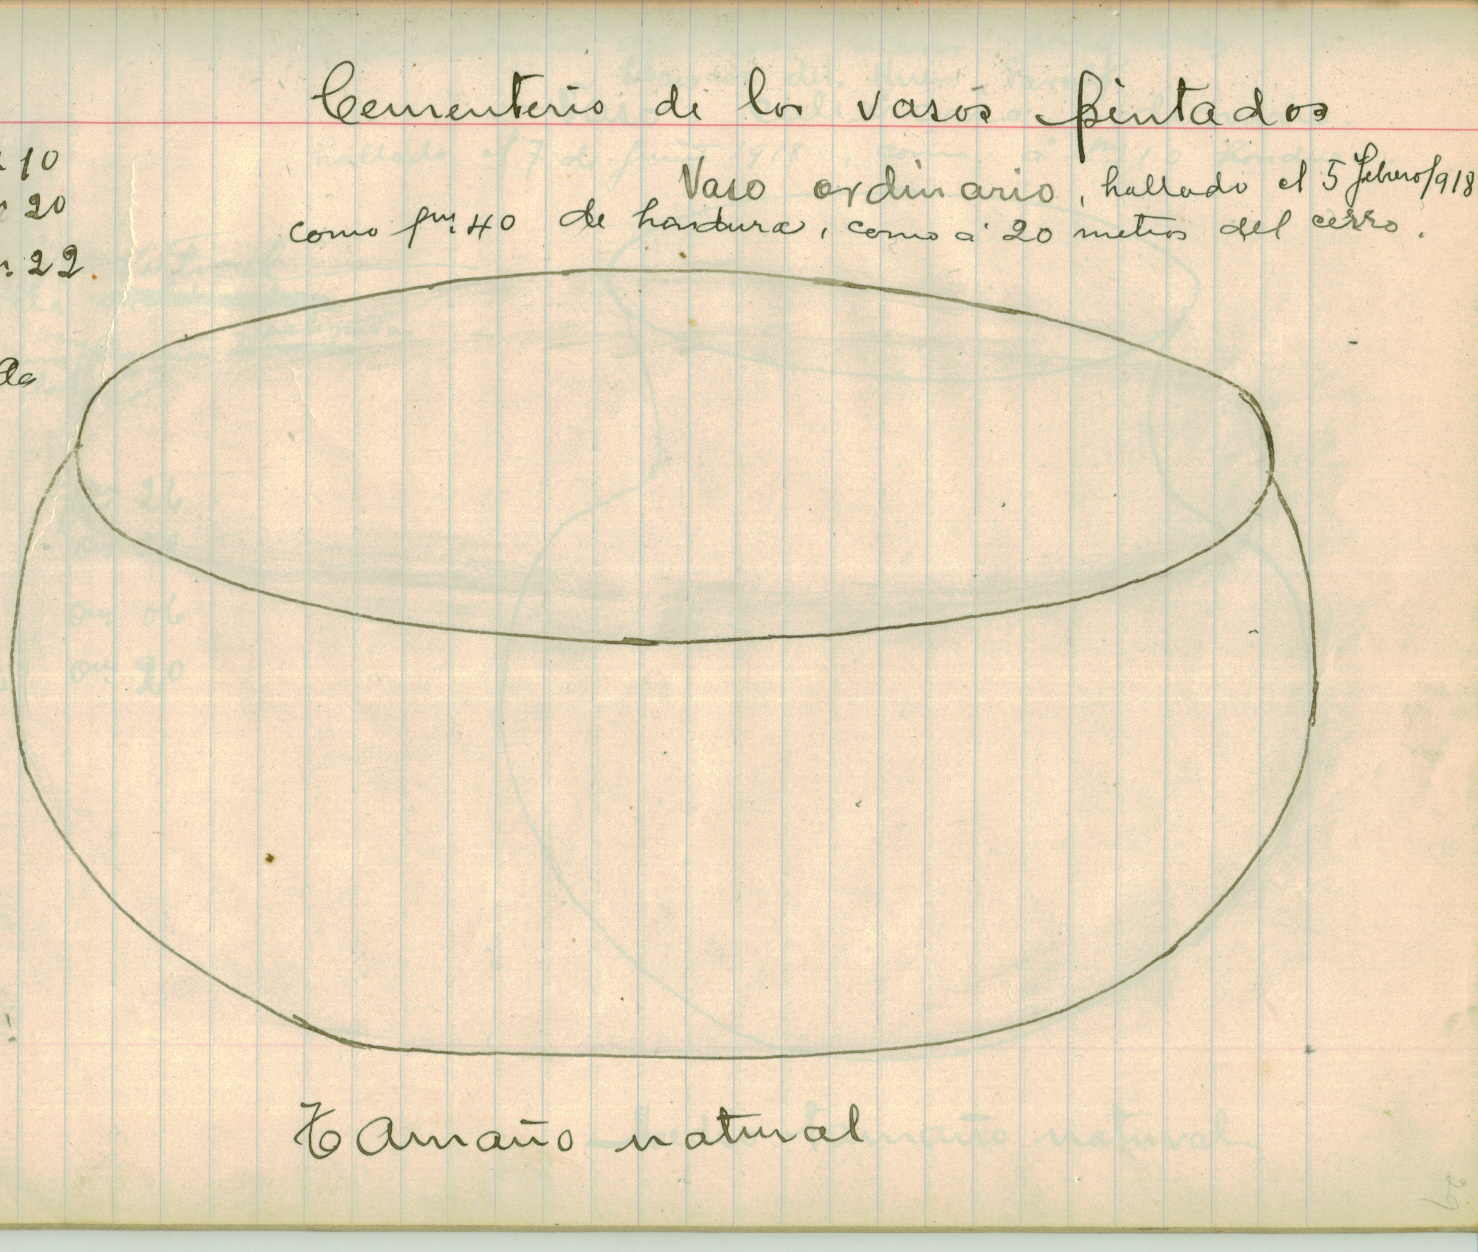 Cementerio de los vasos pintados
Vaso ordinario, hallado el 5 febrero/918
como 40 de hondura, como á 20 metros del cerro.
10
20
22.
Tamaño natural